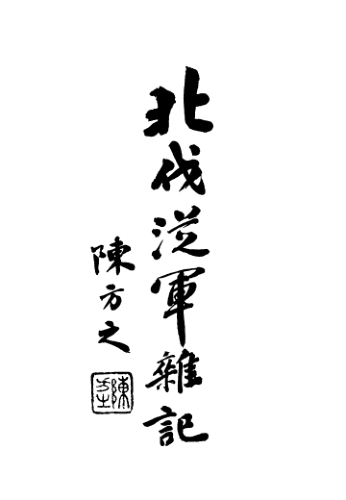 北伐從軍雜記
陳方之
陳方之